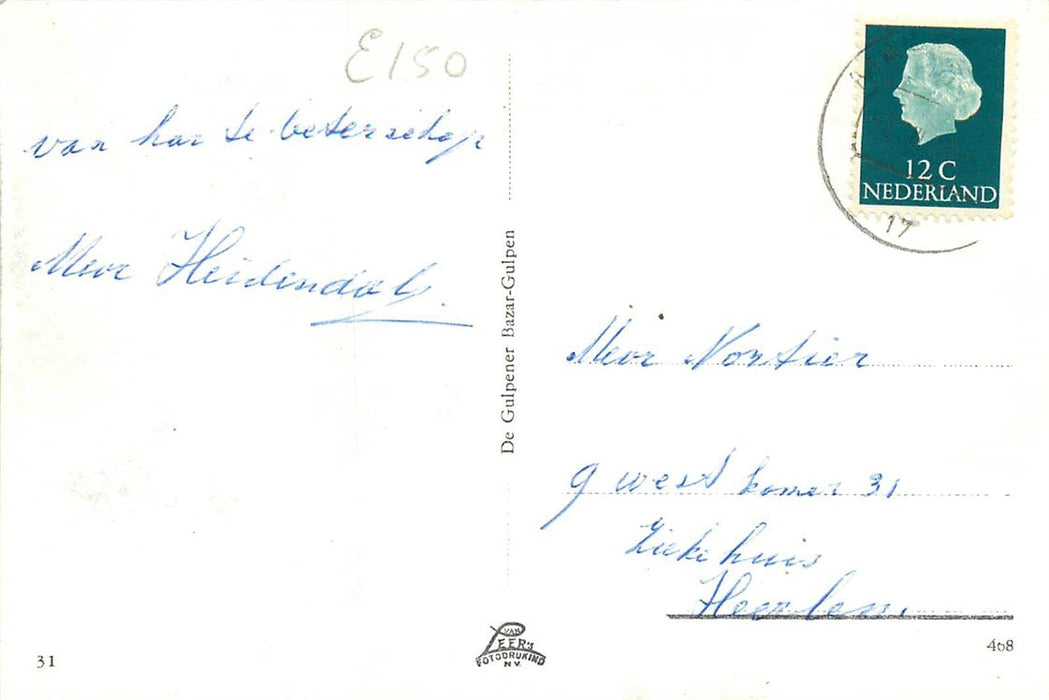 E150
van har te beterschap
Mevr Heidendal.
De Gulpener Bazar-Gulpen
12 C
NEDERLAND
17
Mevr Nortier
9 west kamer 31
Ziekehuis
Heerlen.
VAN
LEER'S
FOTODRUKIND
N.V.
31
468